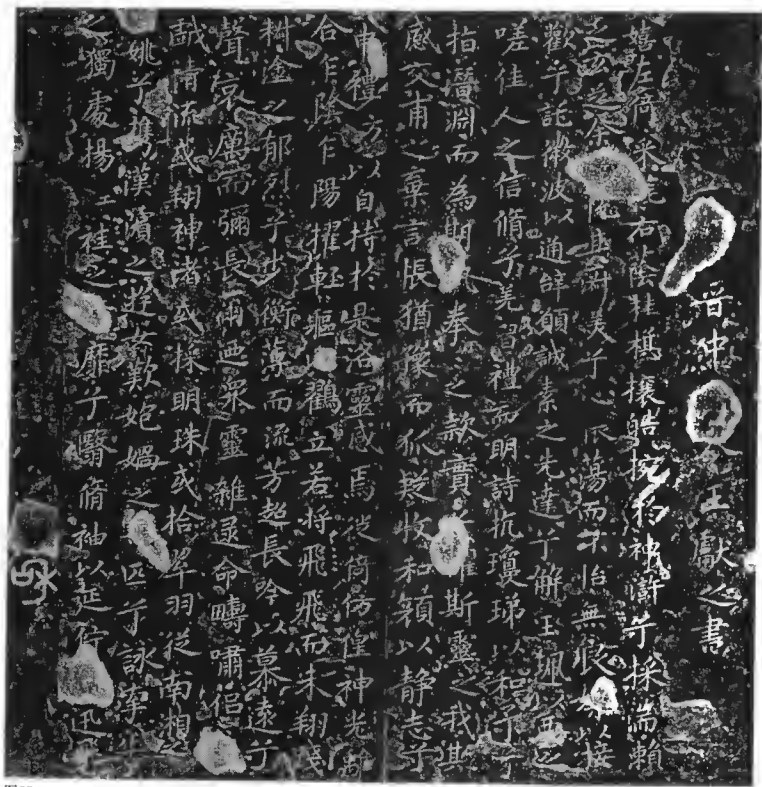 晉中令王獻之書
嬉左倚采旄右蔭桂旗攘皓捥於神滸兮採湍瀨
之玄芝余其淑美兮心振蕩而不怡無良以接
歡兮託微波以通辭願誠素之先達兮解玉珮以要之
嗟佳人之信脩兮羌習禮而明詩抗瓊珶以和予兮
指潛淵而為期執拳〻之款實懼斯靈之我欺
感交甫之棄言悵猶豫而狐疑收和顏以靜志兮
申禮方以自持於是洛靈感焉徙倚傍偟神光離
合乍陰乍陽擢輕軀以鶴立若將飛飛而未翔踐
椒塗之郁烈兮步衡薄而流芳超長吟以慕遠兮
聲哀厲而彌長爾乃眾靈雜遝命疇嘯侶
戲清流或翔神渚或採明珠或拾翠羽從南湘之
姚兮攜漢濱之遊女歎匏媧之匹兮詠牽牛
之獨處揚袿之靡兮翳脩袖以延佇迅